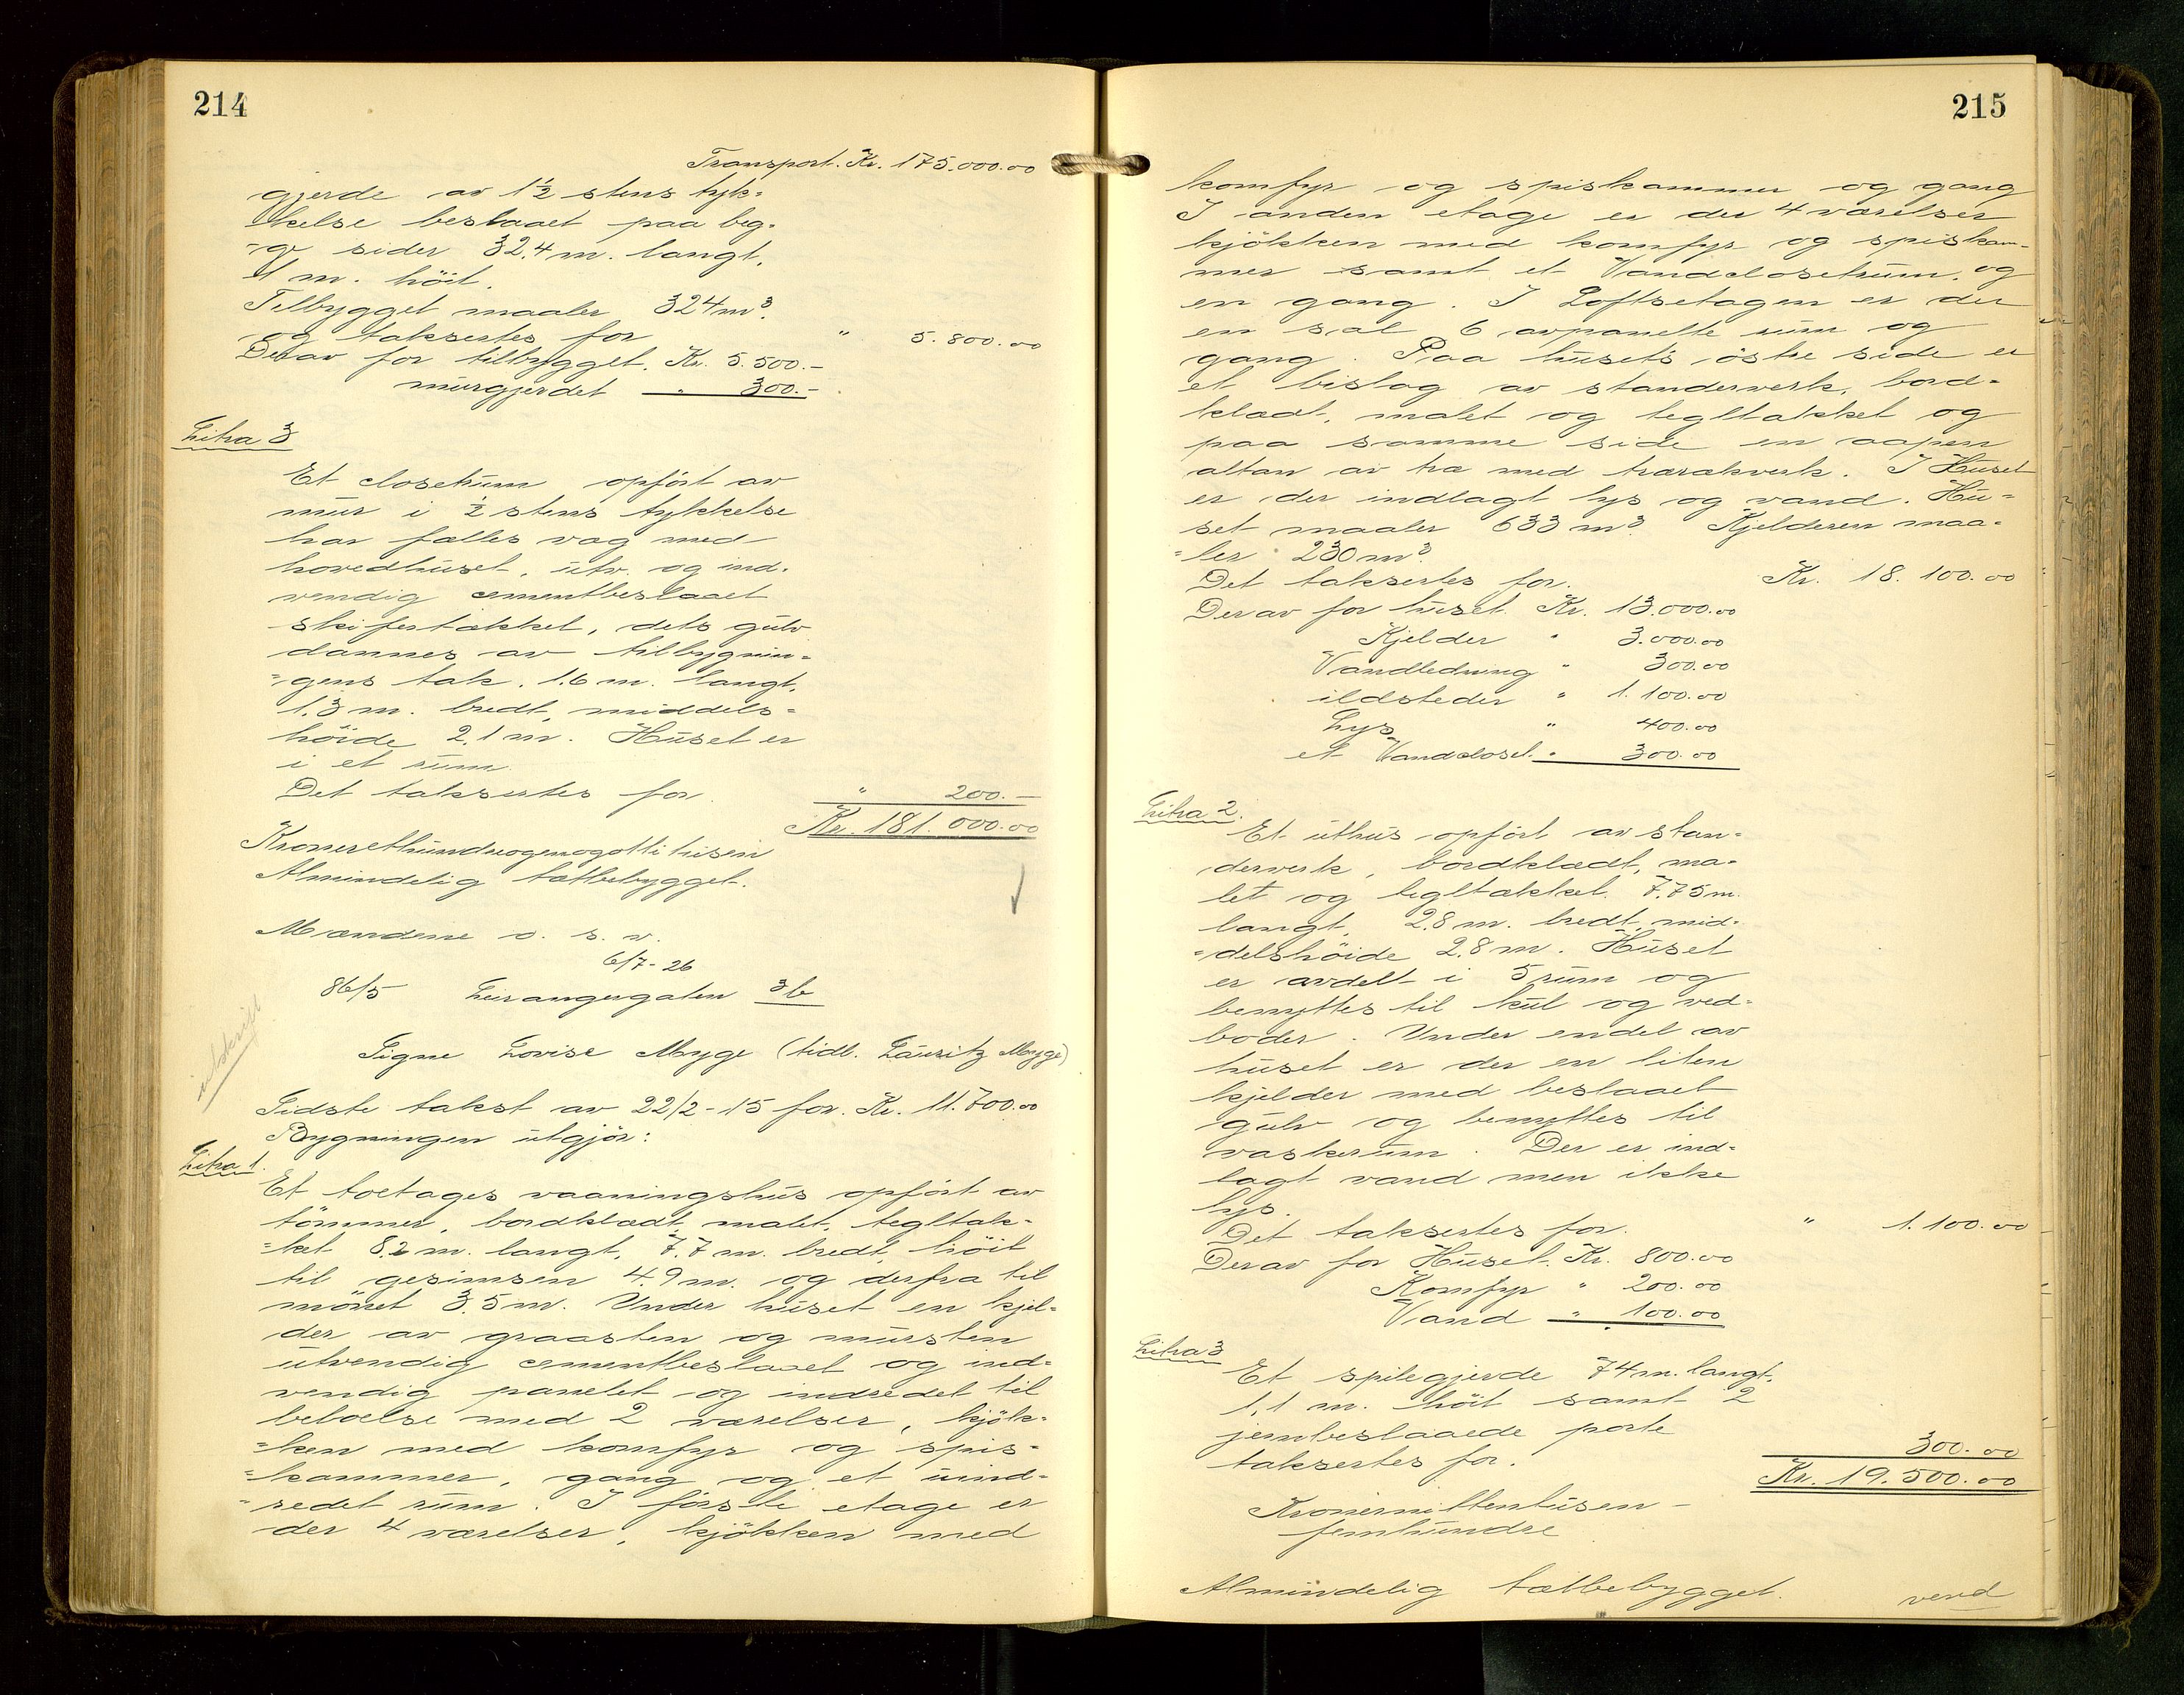 214
Transport. Kr. 175.000.00
gjerde av 1½ stens tyk-
kelse beslaaet paa beg-
ge sider 32.4 m. langt,
1 m. höit.
Tilbygget maaler 324 m³.
og taksertes for " 5.800.00
Derav for tilbygget. Kr. 5.500.-
murgjerdet " 300.-
Litra 3
Et closetrum opfört av
mur i ½ stens tykkelse
har fælles væg med
hovedhuset, utv. og ind-
vendig cementbeslaaet
skifertækket, dets gulv
dannes av tilbygnin-
=gens tak. 1.6 m. langt,
1.3 m. bredt, middels-
höide 2.1 m. Huset er
i et rum.
Det taksertes for. " 200.-
Kr. 181.000.00
Kroneretthundreogenogottitusen
Almindelig tætbebygget.
Mændene o. s. v.
6/7-26
86/5 Leirangergaten 3b
utskrift
Signe Lovise Mygge (tidl. Lauritz Mygge)
Sidste takst av 22/2-15 for. Kr. 11.700.00
Bygningen utgjör:
Litra 1.
Et toetages vaaningshus opfört av
tömmer, bordklædt, malet, tegltæk-
=ket 8.2 m. langt, 7.7 m. bredt, höit
til gesimsen 4.9 m. og derfra til
mönet 3.5 m. Under huset en kjel-
der av graasten og mursten
utvendig cementbeslaaet og ind-
vendig panelet og indredet til
beboelse med 2 værelser, kjök-
=ken med komfyr og spis-
=kammer, gang og et uind-
=redet rum. I förste etage er
der 4 værelser, kjökken med
215
komfyr og spiskammer og gang
I anden etage er der 4 værelser
kjökken med komfyr og spiskam-
mer samt et Vandclosetrum, og
en gang. I Loftsetagen er der
en sal 6 avpanelte rum og
gang. Paa husets östre side er
et bislag av standerverk, bord-
klædt, malet og tegltækket og
paa samme side en aapen
altan av træ med trærækverk. I Huset
er der indlagt lys og vand. Hu-
set maaler 633 m³. Kjelderen maa-
=ler 230 m³.
Det taksertes for. Kr. 18.100.00
Derav for huset Kr. 13.000.00
Kjelder " 3.000.00
Vandledning " 300.00
ildsteder " 1.100.00
Lys " 400.00
et Vandcloset. " 300.00
Litra 2.
Et uthus opfört av stan-
derverk, bordklædt, ma-
let og tegltækket. 7.75 m.
langt, 2.8 m. bredt, mid-
=delshöide 2.8 m. Huset
er avdelt i 5 rum og
benyttes til kul og ved-
boder. Under endel av
huset er der en liten
kjelder med beslaaet
gulv og benyttes til
vaskerum. Der er ind-
lagt vand men ikke
lys.
Det taksertes for. " 1.100.00
Derav for Huset. Kr. 800.00
Komfyr " 200.00
Vand " 100.00
Litra 3
Et spilegjerde 74 m. langt,
1,1 m. höit samt 2
jernbeslaaede porte
taksertes for. 300.00
Kr. 19.500.00
Kronernittentusen-
femhundre
Almindelig tætbebygget.
vend